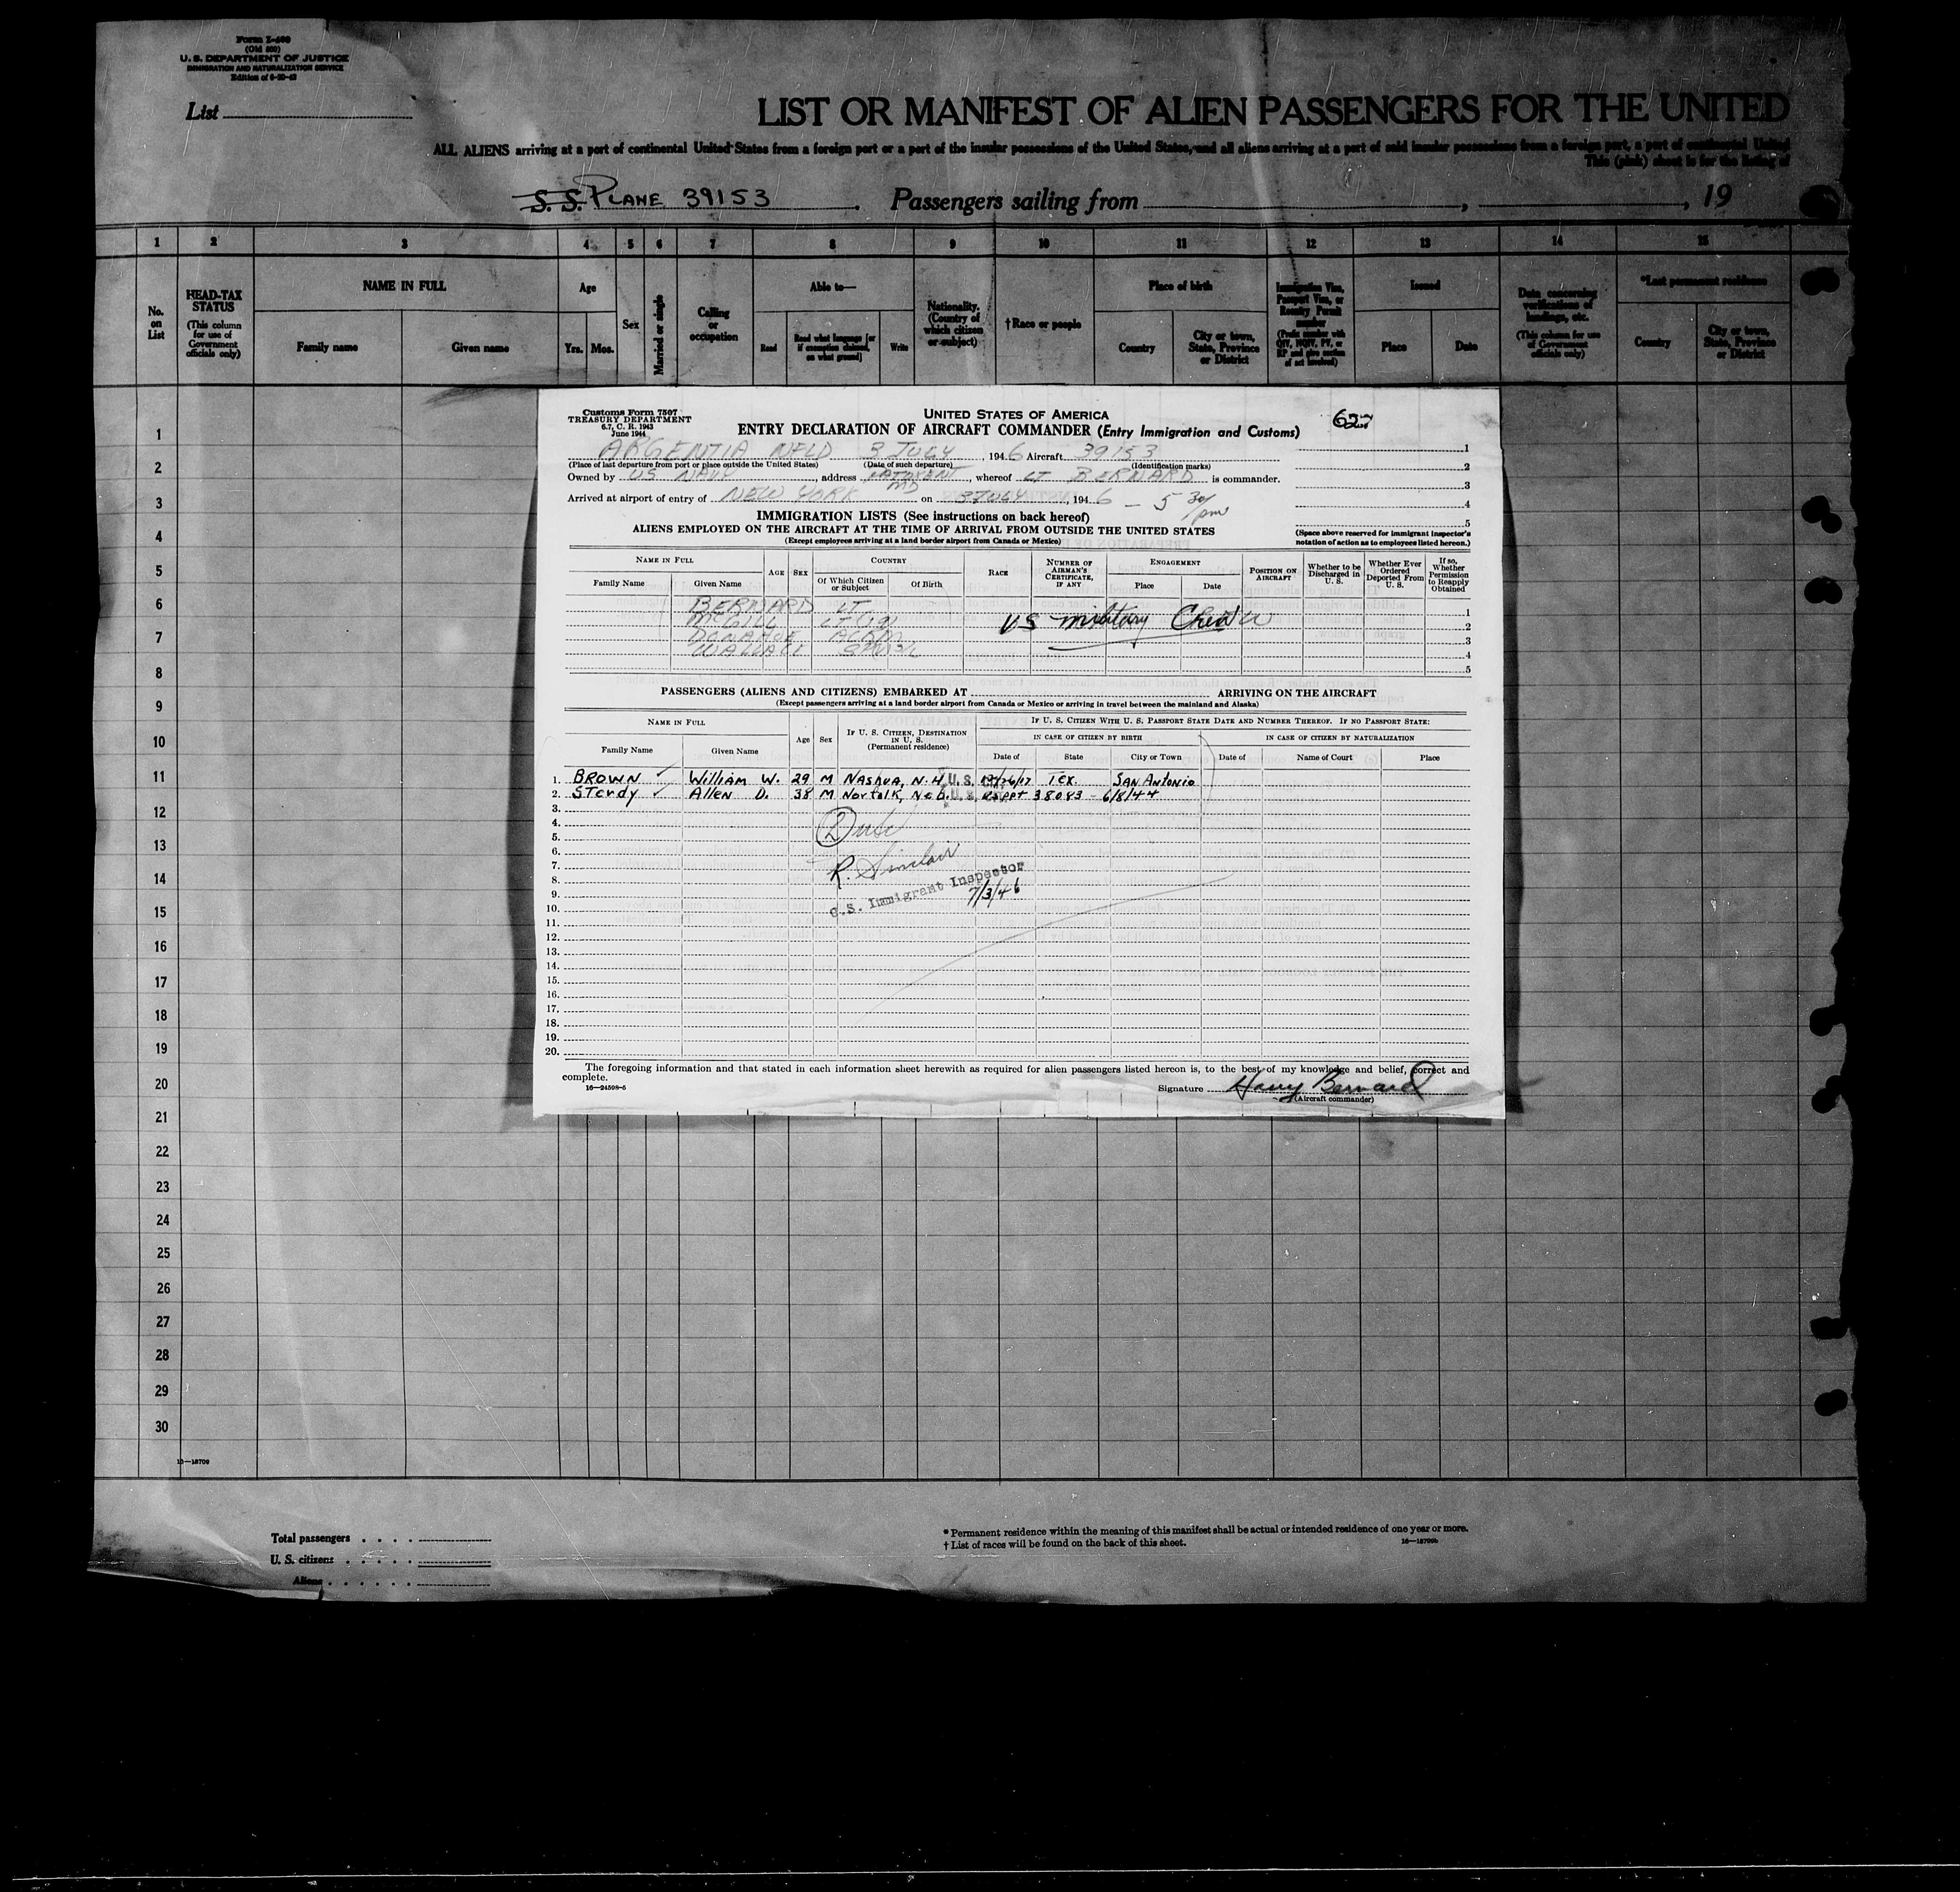 Form I-400
(Old 500)
U. S. DEPARTMENT OF JUSTICE
IMMIGRATION AND NATURALIZATION SERVICE
List
LIST OR MANIFEST OF ALIEN PASSENGERS FOR THE UNITED
ALL ALIENS arriving at a port of continental United States from a foreign port or a port of the insular possessions of the United States, and all aliens arriving at a port of said insular possessions from a foreign port, a port of continental United
This (pink) sheet is for the listing of
S. S. PLANE 39153 Passengers sailing from , , 19
1 2 3 4 5 6 7 8 9 10 11 12 13 14 15
No. on List
HEAD-TAX STATUS
(This column for use of Government officials only)
NAME IN FULL
Family name Given name
Age
Yrs. Mos.
Sex
Married or single
Calling or occupation
Able to—
Read
Read what language [or if exemption claimed, on what ground]
Write
Nationality. (Country of which citizen or subject)
†Race or people
Place of birth
Country City or town, State, Province or District
Immigration Visa, Passport Visa, or Reentry Permit number
(Prefix number with QIV, NQIV, PV, or RP and give section of act involved)
Issued
Place Date
Data concerning verifications of landings, etc.
(This column for use of Government officials only)
*Last permanent residence
Country City or town, State, Province or District
Customs Form 7507
TREASURY DEPARTMENT
6.7, C. R. 1943
June 1944
UNITED STATES OF AMERICA
627
ENTRY DECLARATION OF AIRCRAFT COMMANDER (Entry Immigration and Customs)
ARGENTIA NFLD 3 JULY , 1946 Aircraft 39153
(Place of last departure from port or place outside the United States) (Date of such departure) (Identification marks)
Owned by US NAVY , address PATUXENT MD , whereof LT BERNARD is commander.
Arrived at airport of entry of NEW YORK on 3 JULY , 1946 – 5 30/pm
1
2
3
4
5
IMMIGRATION LISTS (See instructions on back hereof)
ALIENS EMPLOYED ON THE AIRCRAFT AT THE TIME OF ARRIVAL FROM OUTSIDE THE UNITED STATES
(Except employees arriving at a land border airport from Canada or Mexico)
(Space above reserved for immigrant inspector's notation of action as to employees listed hereon.)
NAME IN FULL
Family Name Given Name
AGE SEX
COUNTRY
Of Which Citizen or Subject Of Birth
RACE
NUMBER OF AIRMAN'S CERTIFICATE, IF ANY
ENGAGEMENT
Place Date
POSITION ON AIRCRAFT
Whether to be Discharged in U. S.
Whether Ever Ordered Deported From U. S.
If so, Whether Permission to Reapply Obtained
BERNARD LT 1
McGILL LT (jg) 2
US military Crew
DONAHOE ACRM 3
WALLACE 4
5
PASSENGERS (ALIENS AND CITIZENS) EMBARKED AT ARRIVING ON THE AIRCRAFT
(Except passengers arriving at a land border airport from Canada or Mexico or arriving in travel between the mainland and Alaska)
NAME IN FULL
Family Name Given Name
Age Sex
IF U. S. CITIZEN, DESTINATION IN U. S.
(Permanent residence)
IF U. S. CITIZEN WITH U. S. PASSPORT STATE DATE AND NUMBER THEREOF. IF NO PASSPORT STATE:
IN CASE OF CITIZEN BY BIRTH IN CASE OF CITIZEN BY NATURALIZATION
Date of State City or Town Date of Name of Court Place
1. BROWN ✓ William W. 29 M Nashua, N.H. U.S. Tex. San Antonio
2. Sterdy ✓ Allen D. 38 M Norfolk, Neb. U.S. 38083 – 6/8/44
3.
4.
5.
6.
7.
8.
9.
10.
11.
12.
13.
14.
15.
16.
17.
18.
19.
20.
R. Sinclair
U.S. Immigrant Inspector
7/3/46
The foregoing information and that stated in each information sheet herewith as required for alien passengers listed hereon is, to the best of my knowledge and belief, correct and
complete.
16—24598-5
Signature Harry Bernard
(Aircraft commander)
1
2
3
4
5
6
7
8
9
10
11
12
13
14
15
16
17
18
19
20
21
22
23
24
25
26
27
28
29
30
16—18709
Total passengers
U. S. citizens
Aliens
* Permanent residence within the meaning of this manifest shall be actual or intended residence of one year or more.
† List of races will be found on the back of this sheet.